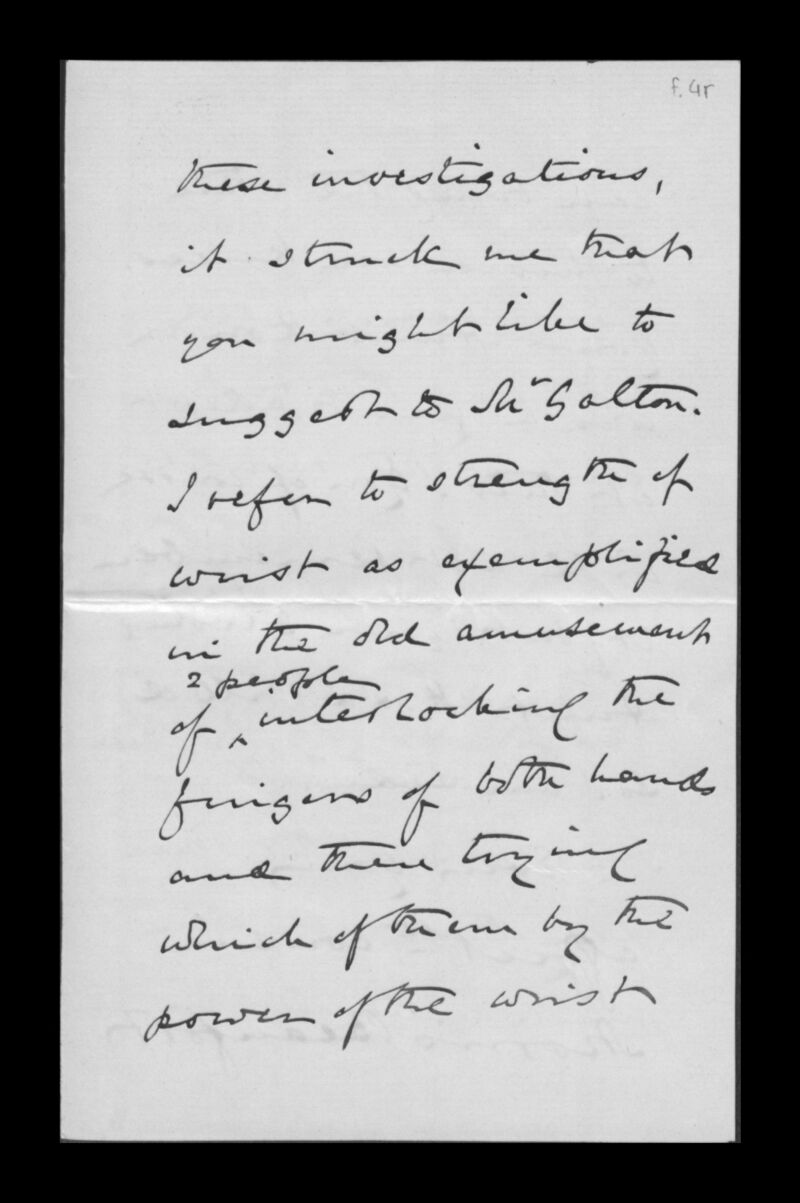 f. 4r
these investigations,
it struck me that
you might like to
suggest to Mr Galton.
I refer to strength of
wrist as exemplified
in the old amusement
2 people
of ^ interlocking the
fingers of both hands
and then trying
which of them by the
power of the wrist